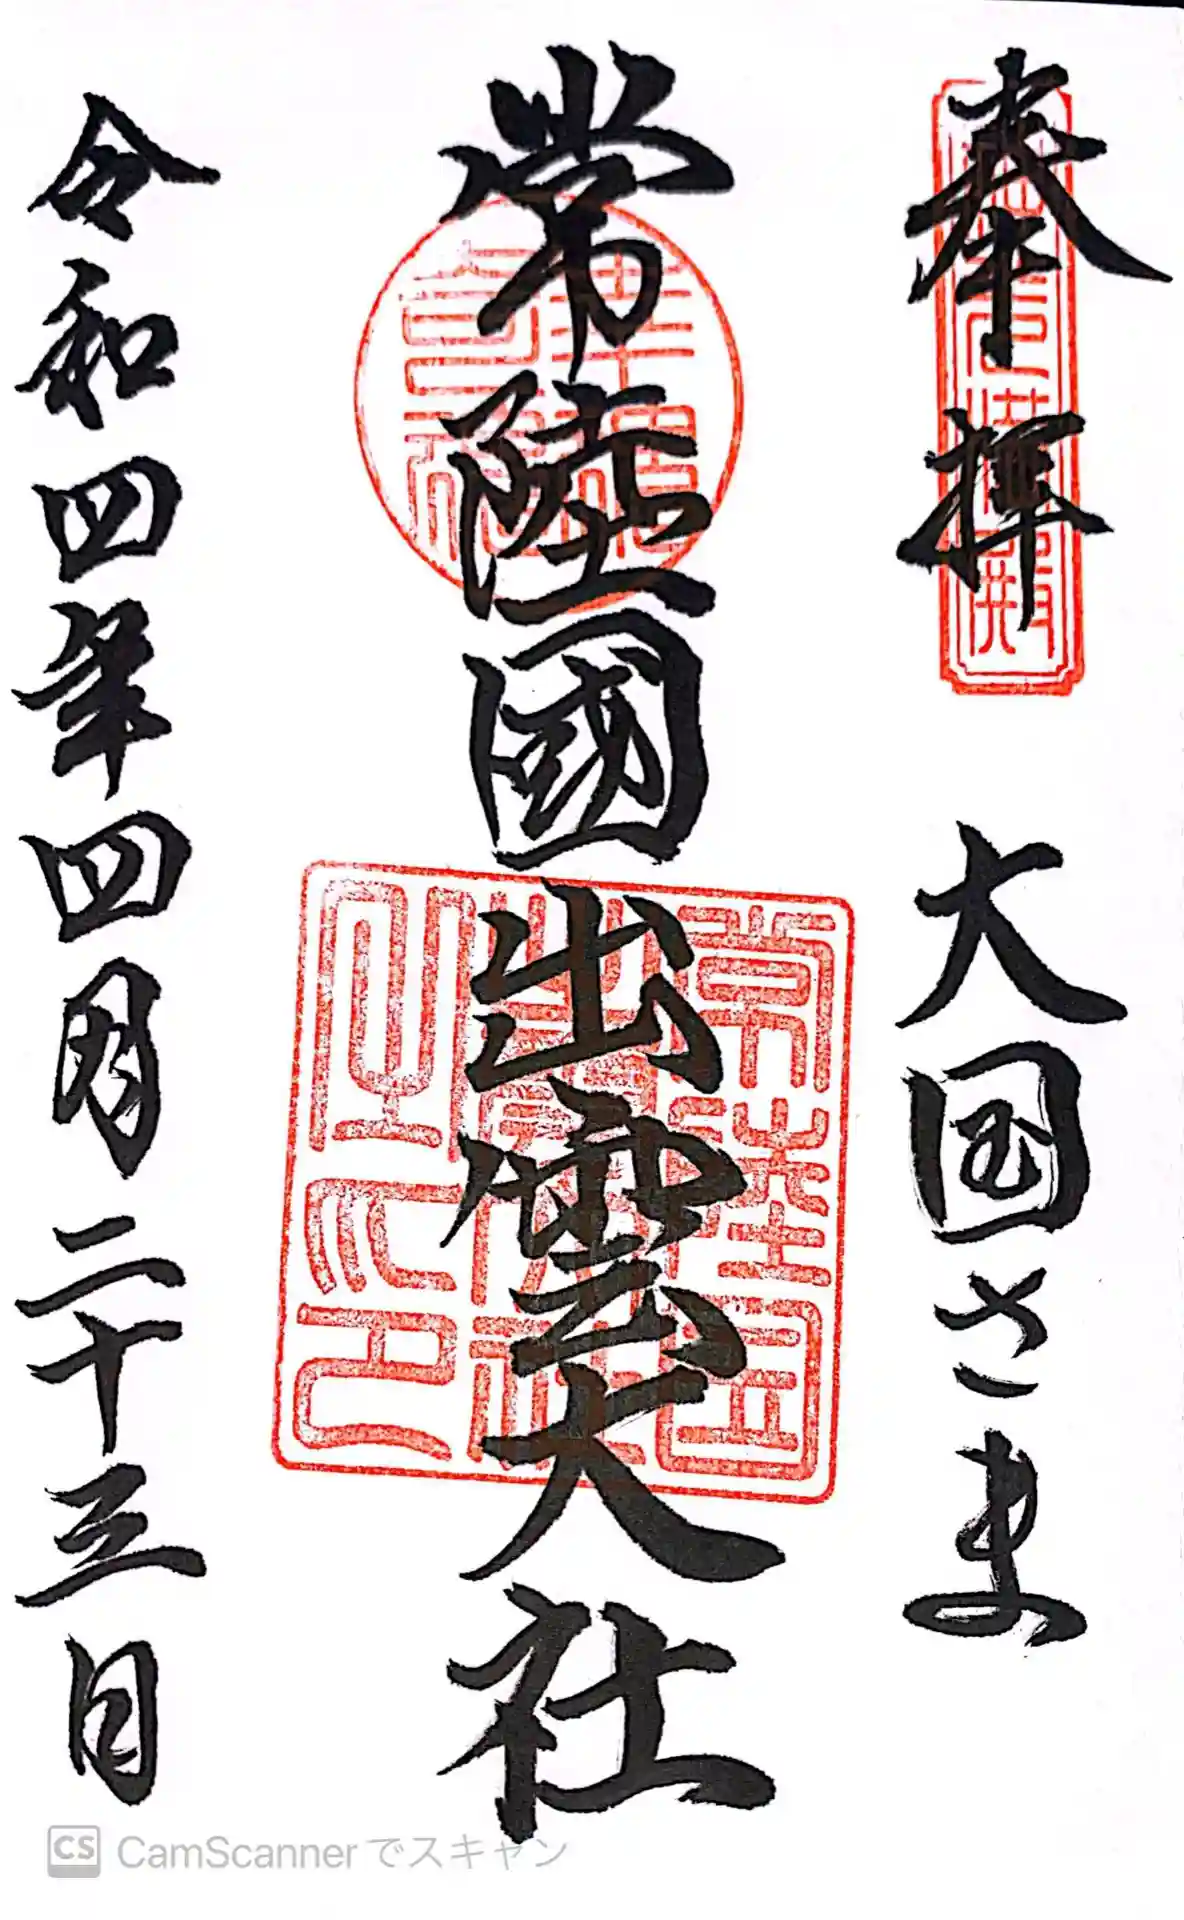 奉拝
大国さま
常陸國出雲大社
令和四年四月二十三日
CS CamScannerでスキャン